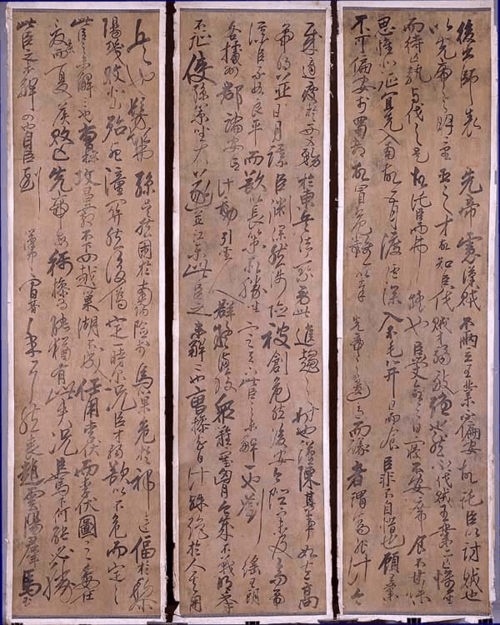 後出師表 先帝慮漢賊不兩立王業不偏安故託臣以討賊也
以先帝之明量臣之才故知臣伐賊才弱敵強也然不伐賊王業亦亡惟坐
而待亡孰與伐之是故託臣而弗疑也臣受命之日寢不安席食不甘味
思惟北征宜先入南故五月渡瀘深入不毛并日而食臣非不自惜也顧王業
不可偏安於蜀都故冒危難以奉先帝之遺意而議者謂為非計今
賊適疲於西又務於東兵法乘勞此進趨之時也謹陳其事如左高
帝明並日月謀臣淵深然涉險被創危然後安今陛下未及高帝
謀臣不如良平而欲以長策取勝坐定天下此臣之未解一也劉繇王朗
各據州郡論安言計動引聖人群疑滿腹衆難塞胸今歲不戰明年
不征使孫策坐大遂並江東此臣之未解二也曹操智計殊絕於人其用
兵也髣髴孫吳然困於南陽險於烏巢危於祁連偪於黎
陽幾敗北山殆死潼關然後偽定一時耳況臣才弱而欲以不危而定之
此臣之未解三也曹操五攻昌霸不下四越巢湖不成任用李服而李服圖之委任
夏侯而夏侯敗亡先帝每稱操為能猶有此失況臣駑下何能必勝
此臣之未解四也自臣到漢中中間朞年耳然喪趙雲陽羣馬玉